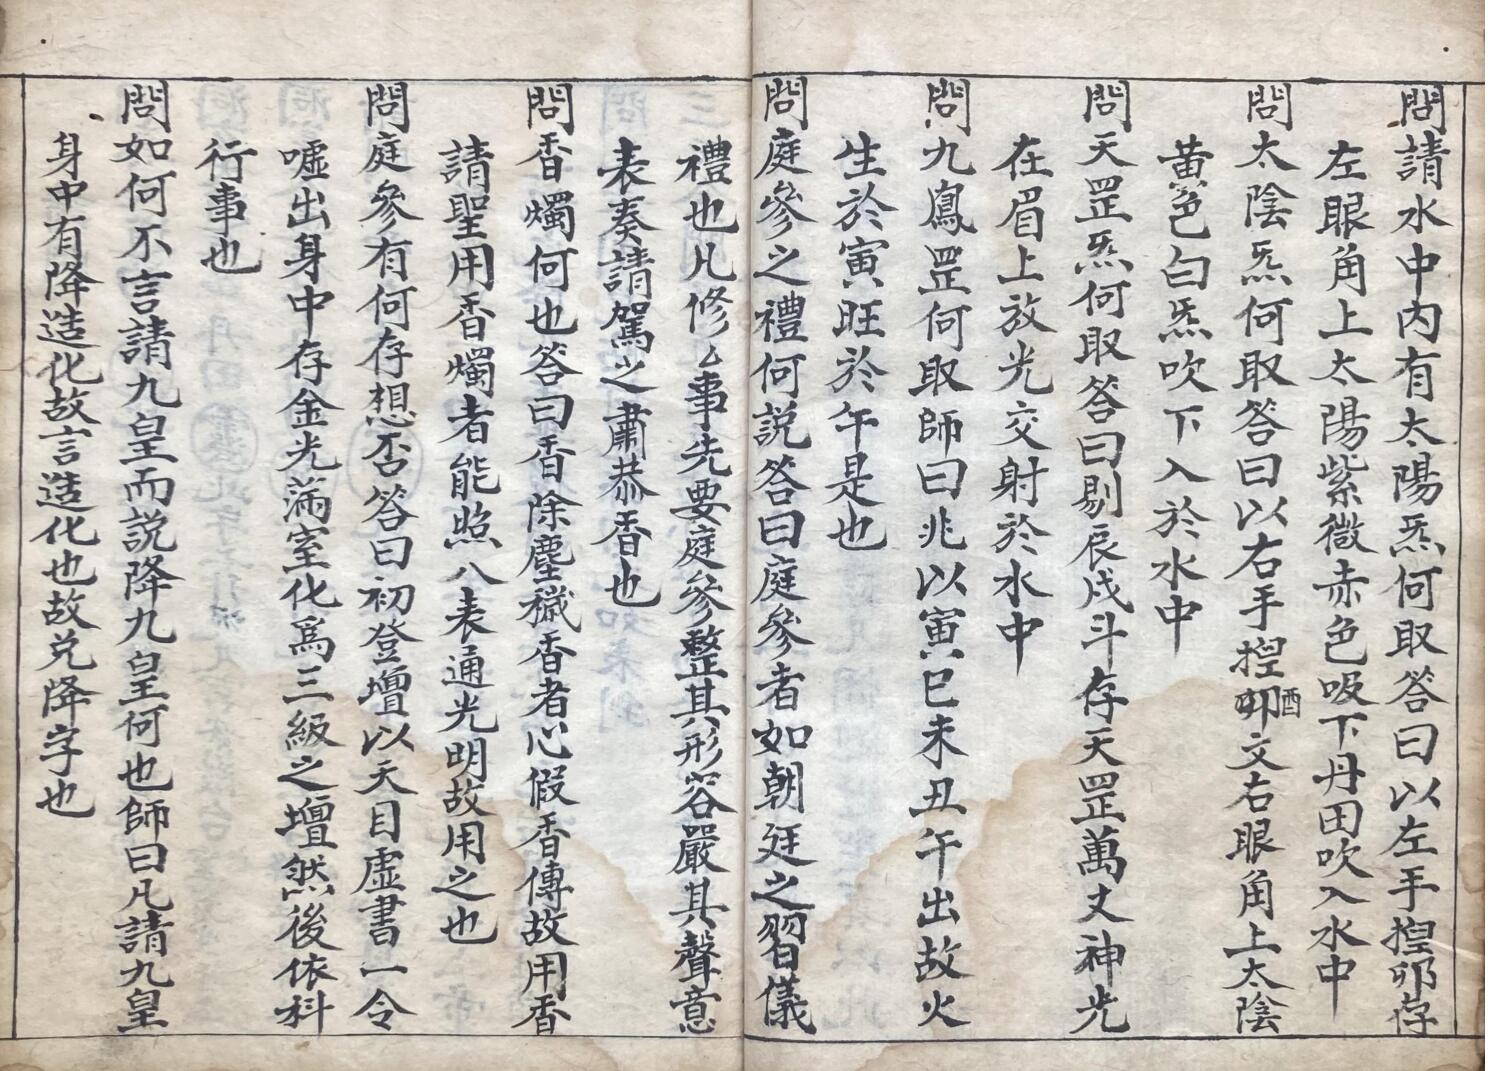 問請水中內有太陽炁何取答曰以左手揑卯存
左眼角上太陽紫微赤色吸下丹田吹入水中
問太陰炁何取答曰以右手揑卯酉文右眼角上太陰
黄色白炁吹下入於水中
問天罡炁何取答曰剔辰戌斗存天罡萬丈神光
在眉上放光交射於水中
問九鳳罡何取師曰兆以寅巳未丑午出故火
生於寅旺於午是也
問庭參之禮何説答曰庭參者如朝廷之習儀
禮也凡修么事先要庭參整其形容嚴其聲意
表奏請駕之肅恭香也
問香燭何也答曰香除塵穢香者心假香傳故用香
請聖用香燭者能照八表通光明故用之也
問庭參有何存想否答曰初登壇以天目虛書一令
噓出身中存金光滿室化爲三級之壇然後依科
行事也
問如何不言請九皇而説降九皇何也師曰凡請九皇
身中有降造化故言造化也故兑降字也